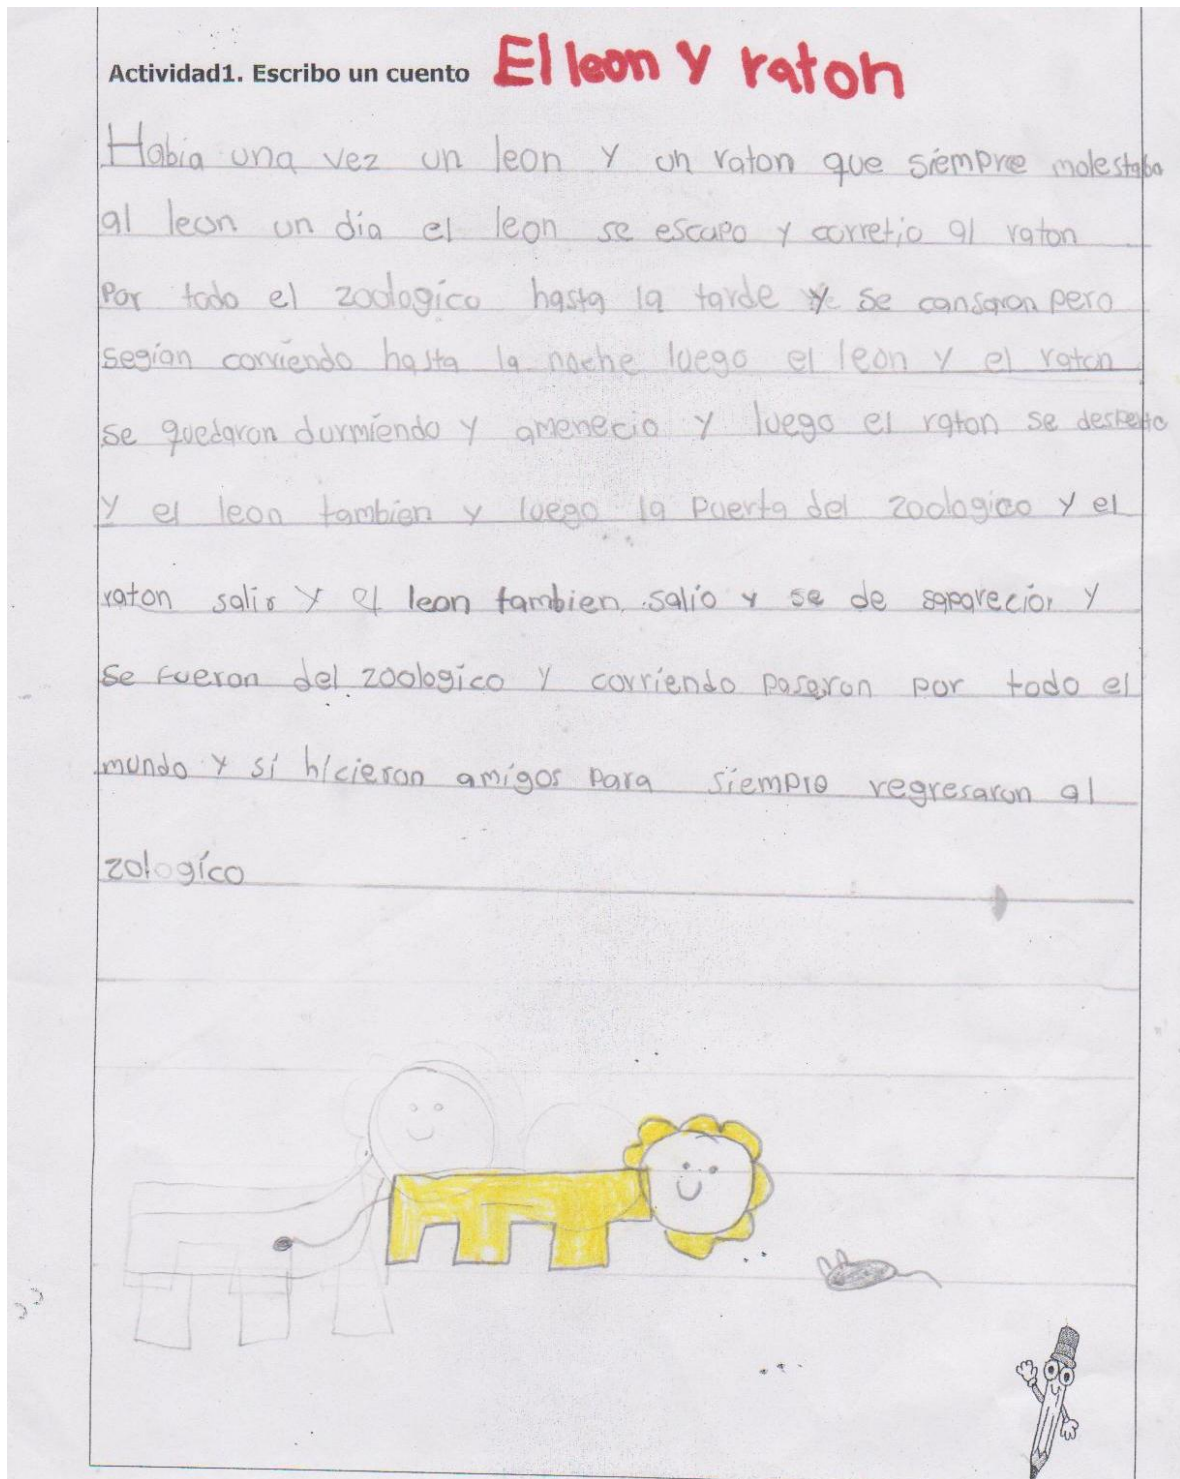 Actividad1. Escribo un cuento El leon y raton
Habia una vez un leon y un raton que siempre molestaba
al leon un dia el leon se escapo y corretio al raton
por todo el zoologico hasta la tarde y se cansaron pero
segian corriendo hasta la noche luego el leon y el raton
se quedaron durmiendo y amenecio y luego el raton se desperto
y el leon tambien y luego la puerta del zoologico y el
raton salio y el leon tambien salio y se de saparecior y
se fueron del zoologico y corriendo pasaron por todo el
mundo y si hicieron amigos para siempre regresaron al
zologico